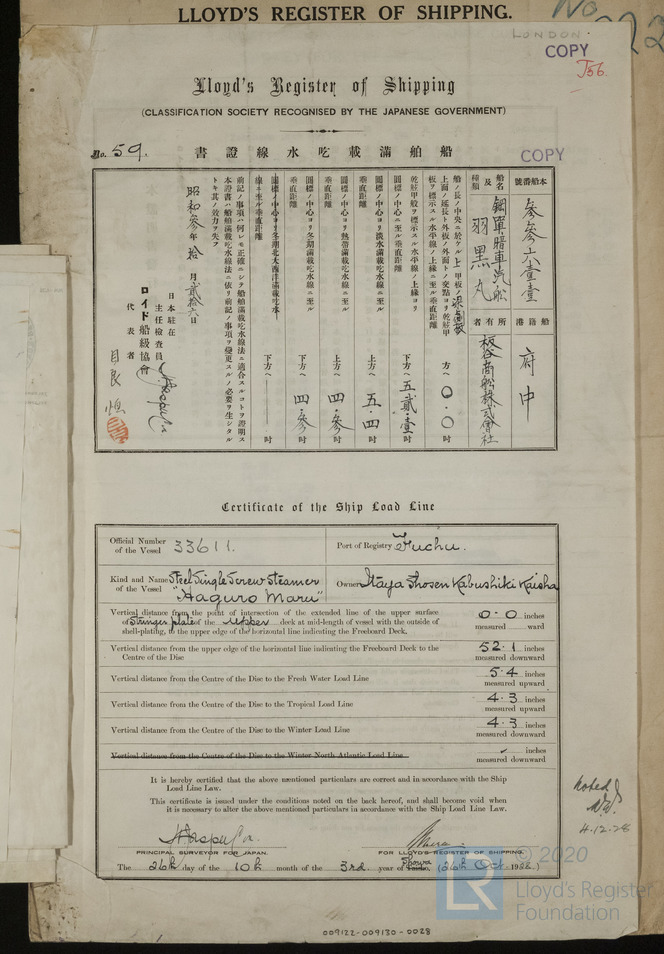 LLOYD'S REGISTER OF SHIPPING.
No
LONDON.
COPY
J56.
Lloyd's Register of Shipping
(CLASSIFICATION SOCIETY RECOGNISED BY THE JAPANESE GOVERNMENT)
No. 59.
書證線水吃載滿舶船
COPY
號番船本
參參六壹壹
港籍船
府中
船名及種類
鋼單暗車汽船
羽黑丸
者有所
板谷商船株式會社
方へ 〇・〇 吋
乾舷甲板ヲ標示スル水平線ノ上縁ヨリ
圓標ノ中心ニ至ル垂直距離
下方へ 五貳・壹 吋
圓標ノ中心ヨリ淡水滿載吃水線ニ至ル
垂直距離
上方へ 五・四 吋
圓標ノ中心ヨリ熱帶滿載吃水線ニ至ル
垂直距離
上方へ 四・參 吋
圓標ノ中心ヨリ冬期滿載吃水線ニ至ル
垂直距離
下方へ 四・參 吋
圓標ノ中心ヨリ冬期北大西洋滿載吃水
線ニ至ル垂直距離
下方へ 吋
前記ノ事項ハ何レモ正確ニシテ船舶滿載吃水線法ニ適合スルコトヲ證明ス
本證書ハ船舶滿載吃水線法ニ依リ前記ノ事項ヲ變更スルノ必要ヲ生シタル
トキ其ノ效力ヲ失フ
昭和參年拾月貳拾六日
日本駐在
主任檢査員
ロイド船級協會
代表者
Certificate of the Ship Load Line
Official Number of the Vessel 33611.
Port of Registry Fuchu.
Kind and Name of the Vessel Steel Single Screw Steamer "Haguro Maru"
Owner Itaya Shosen Kabushiki Kaisha
Vertical distance from the point of intersection of the extended line of the upper surface
of Stringer plate of the upper deck at mid-length of vessel with the outside of
shell-plating, to the upper edge of the horizontal line indicating the Freeboard Deck,
0·0 inches
measured ward
Vertical distance from the upper edge of the horizontal line indicating the Freeboard Deck to the
Centre of the Disc
52·1 inches
measured downward
Vertical distance from the Centre of the Disc to the Fresh Water Load Line
5·4 inches
measured upward
Vertical distance from the Centre of the Disc to the Tropical Load Line
4·3 inches
measured upward
Vertical distance from the Centre of the Disc to the Winter Load Line
4·3 inches
measured downward
Vertical distance from the Centre of the Disc to the Winter North Atlantic Load Line
inches
measured downward
It is hereby certified that the above mentioned particulars are correct and in accordance with the Ship
Load Line Law.
This certificate is issued under the conditions noted on the back hereof, and shall become void when
it is necessary to alter the above mentioned particulars in accordance with the Ship Load Line Law.
PRINCIPAL SURVEYOR FOR JAPAN.
FOR LLOYD'S REGISTER OF SHIPPING.
The 26th day of the 10th month of the 3rd. year of Showa (26th Oct 1928.)
Noted
4.12.28
© 2020
LR Lloyd's Register
Foundation
009122-009130-0028